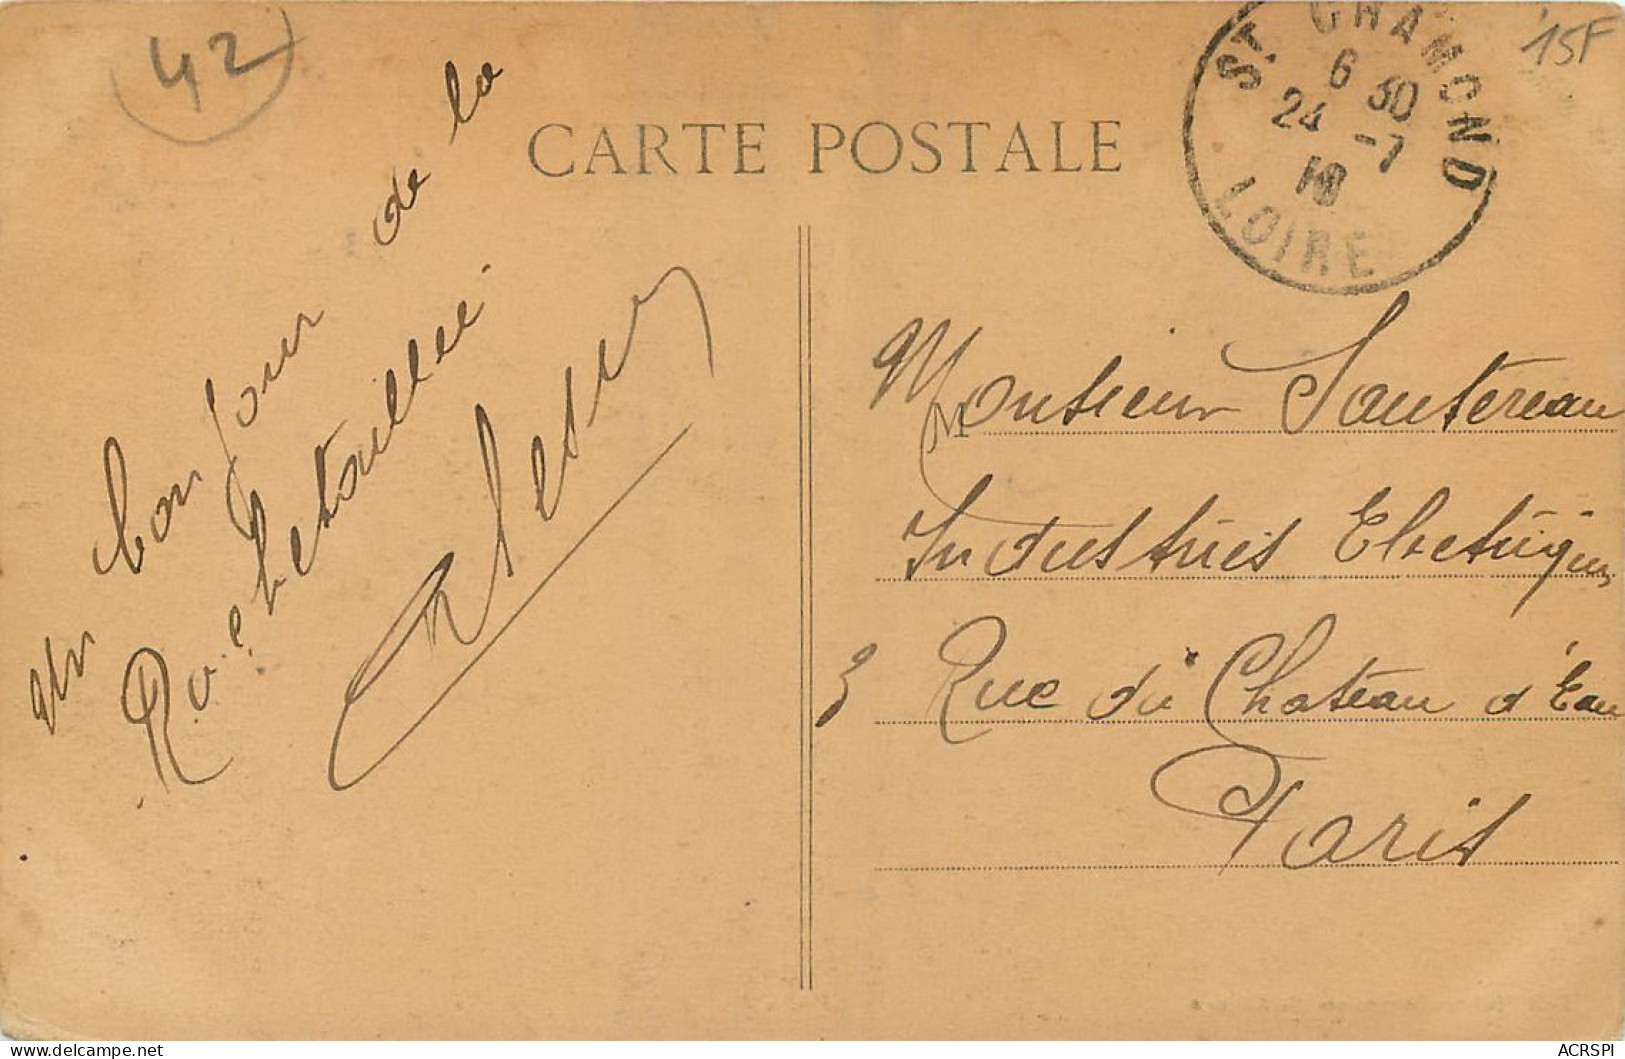 42
15F
CARTE POSTALE
ST CHAMOND
6 30
24 -7
18
LOIRE
un bonjour de la
Rochetaillée
M
Monsieur Sautereau
Industries Electriques
3 Rue du Chateau d'Eau
Paris
ACRSPI